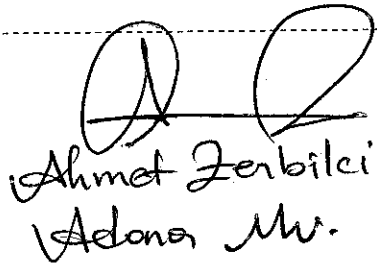 Ahmet Zerbilci
Adana Mv.